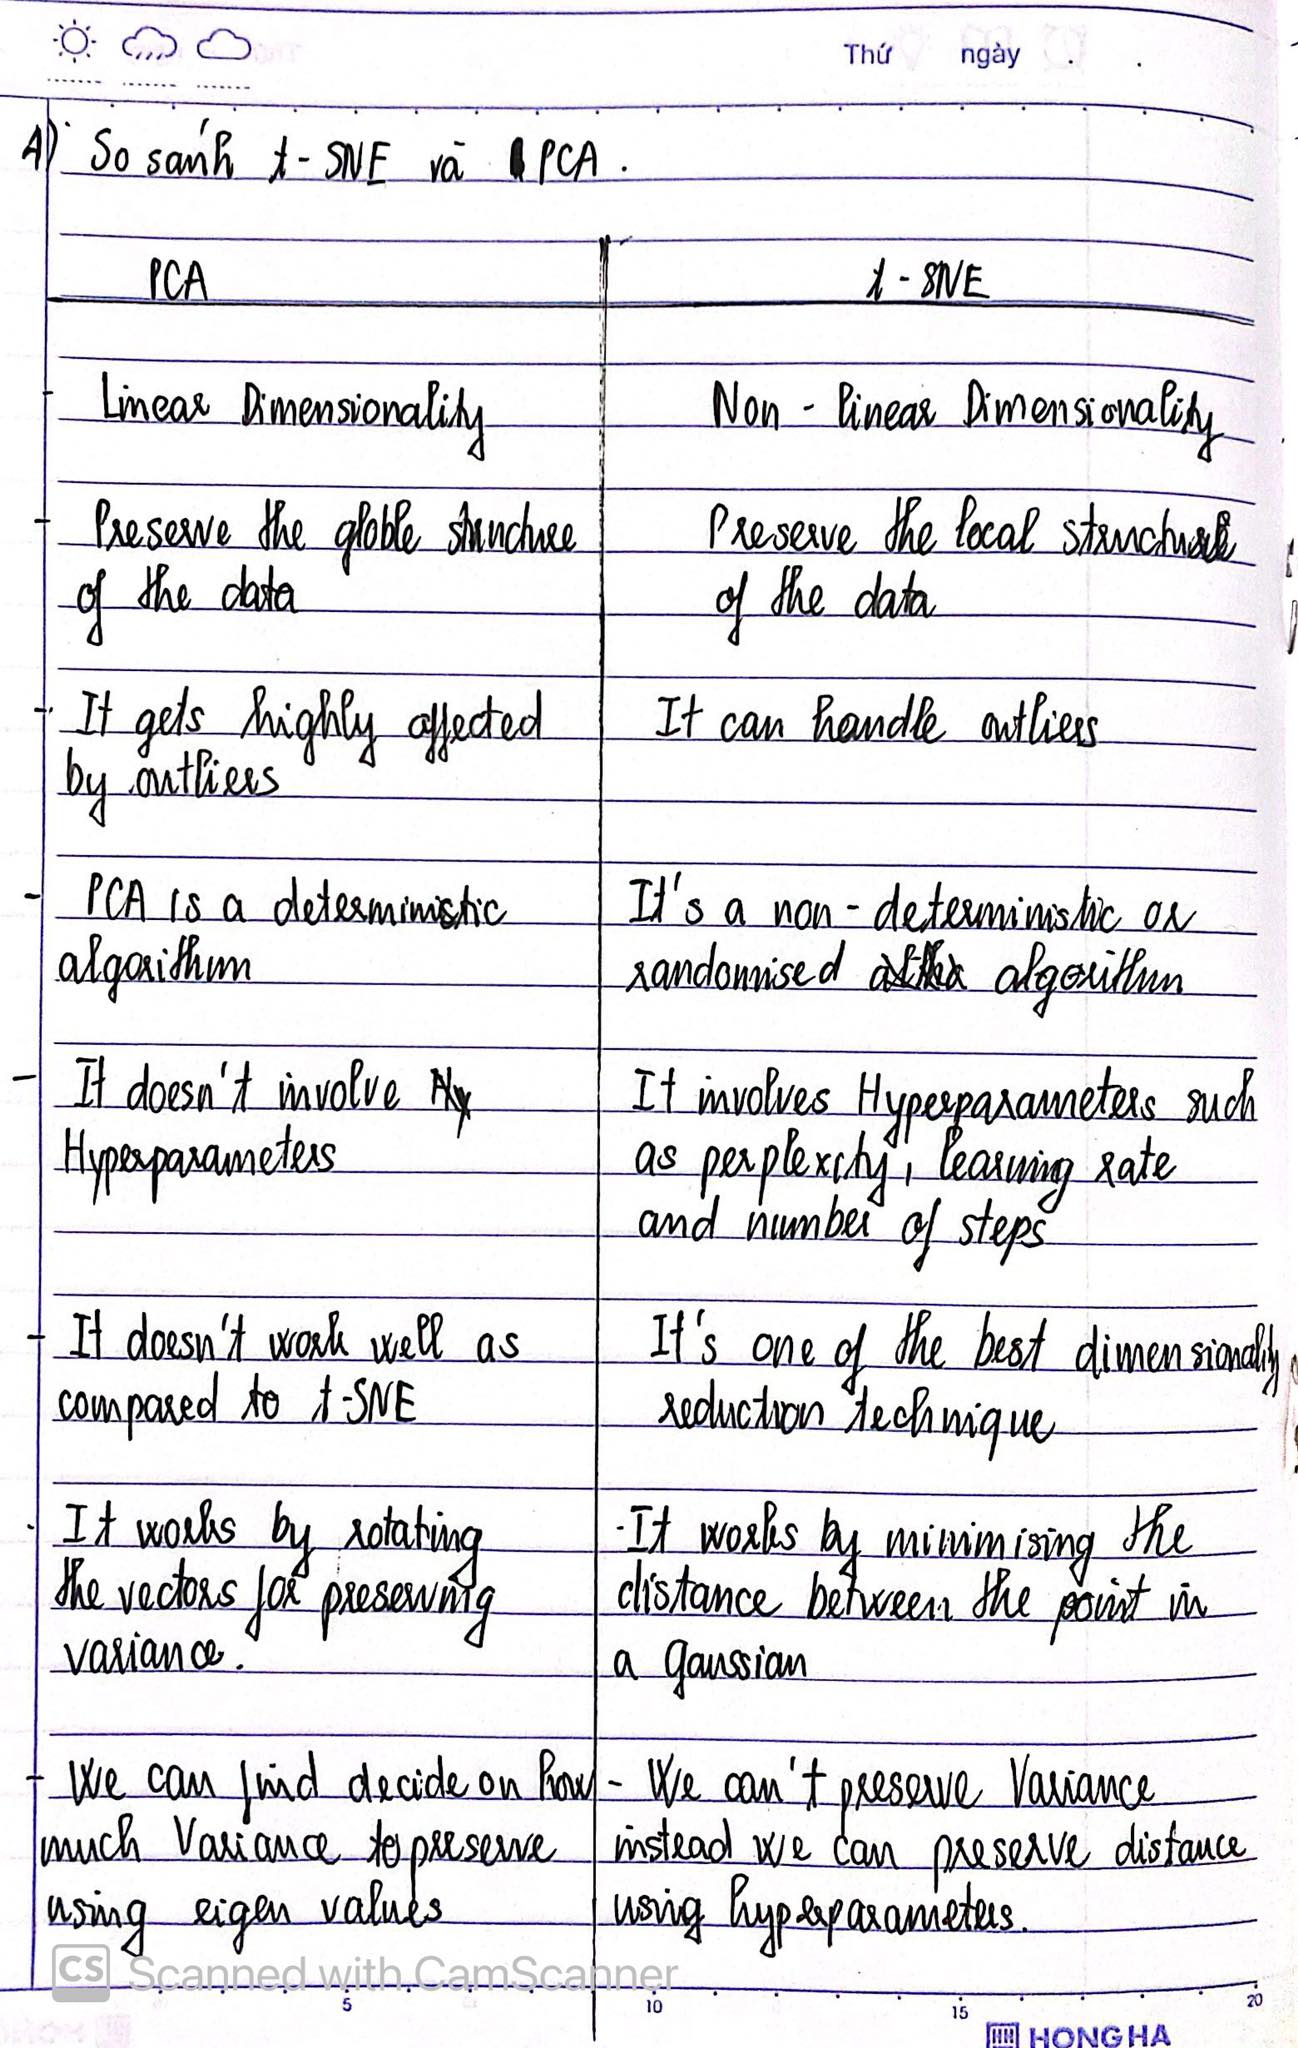 Thứ ngày
A) So sánh t-SNE và PCA.
PCA
t-SNE
Linear Dimensionality
Non-linear Dimensionality
Preserve the globle structure
of the data
Preserve the local structure
of the data
It gets highly affected
by outliers
It can handle outliers
PCA is a deterministic
algorithm
It's a non-deterministic or
randomised algorithm
It doesn't involve
Hyperparameters
It involves Hyperparameters such
as perplexity, learning rate
and number of steps
It doesn't work well as
compared to t-SNE
It's one of the best dimensionality
reduction technique
It works by rotating
the vectors for preserving
variance.
- It works by minimising the
distance between the point in
a gaussian
- We can find decide on how
much Variance to preserve
using eigen values
- We can't preserve Variance
instead we can preserve distance
using hyperparameters.
CS Scanned with CamScanner
5 10 15 20
HONG HA